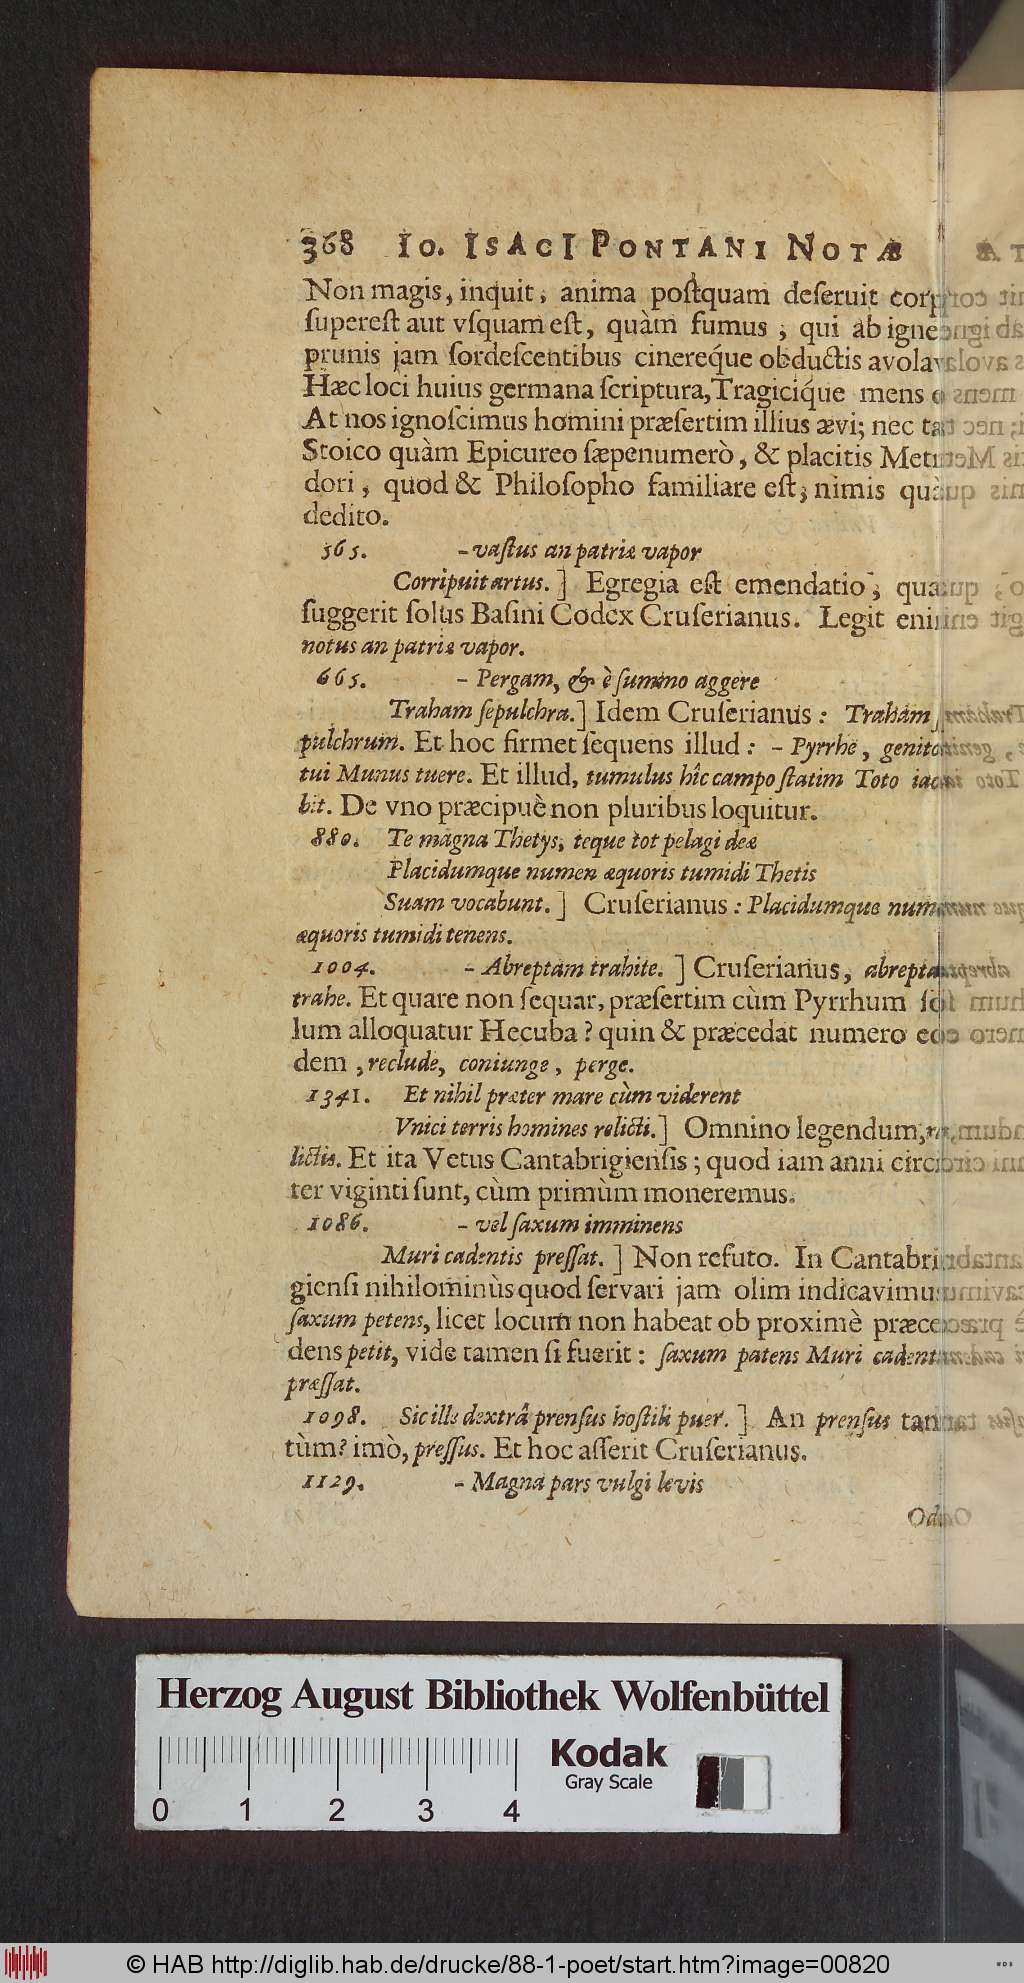 368 IO. ISACI PONTANI NOTÆ
Non magis, inquit, anima poſtquam deſeruit corp
ſupereſt aut vſquam eſt, quàm fumus, qui ab igne
prunis jam ſordeſcentibus cinereq́ue obductis avola
Hæc loci huius germana ſcriptura, Tragiciq́ue mens
At nos ignoſcimus homini præſertim illius ævi; nec
Stoico quàm Epicureo ſæpenumerò, & placitis Met
dori, quod & Philoſopho familiare eſt, nimis
dedito.
565. – vaſtus an patriæ vapor
Corripuit artus.] Egregia eſt emendatio,
ſuggerit ſolus Baſini Codex Cruſerianus. Legit eni
notus an patriæ vapor.
665. – Pergam, & è ſummo aggere
Traham ſepulchra.] Idem Cruſerianus: Traham
pulchrum. Et hoc firmet ſequens illud: – Pyrrhe, genito
tui Munus tuere. Et illud, tumulus hîc campo ſtatim Toto iac
bit. De vno præcipuè non pluribus loquitur.
880. Te magna Thetys, teque tot pelagi deæ
Placidumque numen æquoris tumidi Thetis
Suam vocabunt.] Cruſerianus: Placidumque num
æquoris tumidi tenens.
1004. – Abreptam trahite.] Cruſerianus, abrepta
trahe. Et quare non ſequar, præſertim cùm Pyrrhum ſo
lum alloquatur Hecuba? quin & præcedat numero eo
dem, reclude, coniunge, perge.
1341. Et nihil præter mare cùm viderent
Vnici terris homines relicti.] Omnino legendum, re
lictis. Et ita Vetus Cantabrigienſis; quod iam anni circi
ter viginti ſunt, cùm primùm moneremus.
1086. – vel ſaxum imminens
Muri cadentis preſſat.] Non refuto. In Cantabri
gienſi nihilominùs quod ſervari jam olim indicavimus
ſaxum petens, licet locum non habeat ob proximè præce
dens petit, vide tamen ſi fuerit: ſaxum patens Muri cadent
præſſat.
1098. Sic ille dextrâ prenſus hoſtili puer.] An prenſus tan
tùm? imò, preſſus. Et hoc aſſerit Cruſerianus.
1129. – Magna pars vulgi levis
Od
Herzog August Bibliothek Wolfenbüttel
Kodak
Gray Scale
0 1 2 3 4
© HAB http://diglib.hab.de/drucke/88-1-poet/start.htm?image=00820